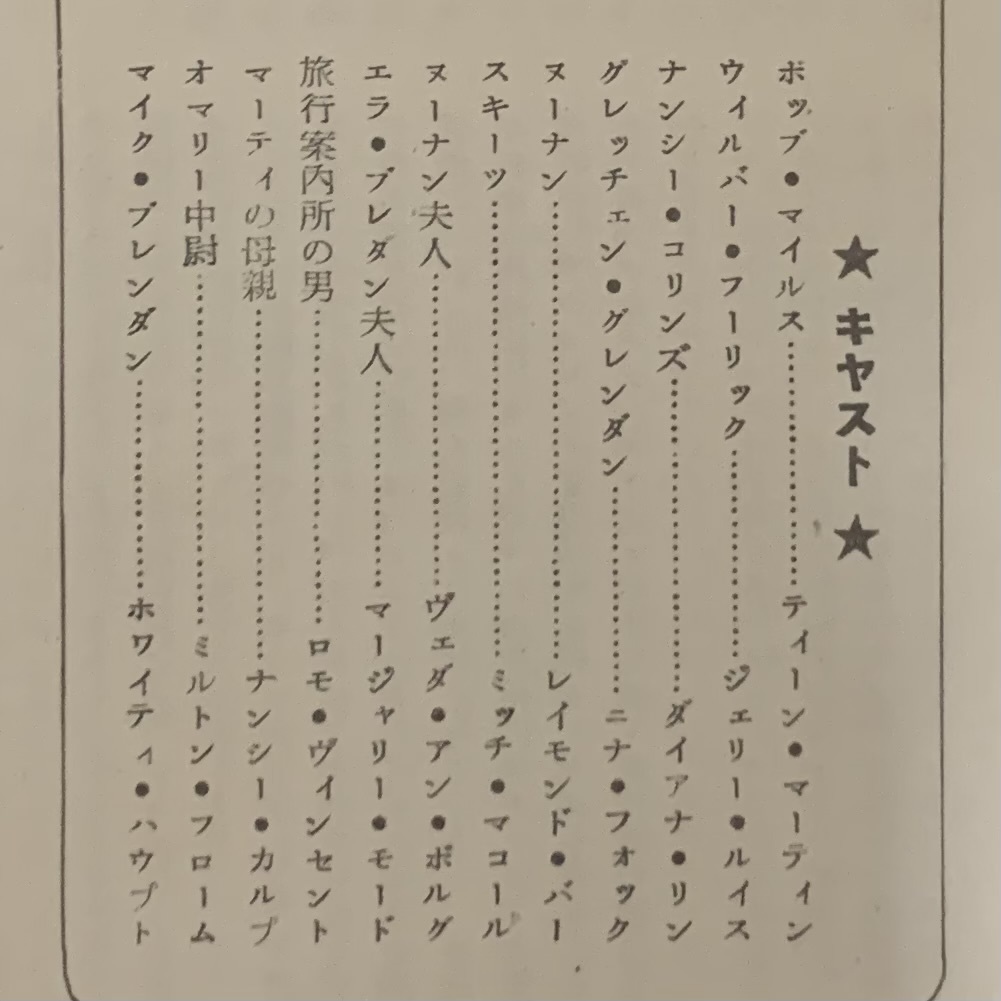 ★ キャスト ★
ボップ・マイルス……………………ティーン・マーティン
ウイルバー・フーリック……………………ジェリー・ルイス
ナンシー・コリンズ……………………ダイアナ・リン
グレッチェン・グレンダン……………………ニナ・フォック
ヌーナン……………………レイモンド・バー
スキーツ……………………ミッチ・マコール
ヌーナン夫人……………………ヴェダ・アン・ボルグ
エラ・ブレダン夫人……………………マージャリー・モード
旅行案内所の男……………………ロモ・ヴィンセント
マーティの母親……………………ナンシー・カルプ
オマリー中尉……………………ミルトン・フローム
マイク・ブレンダン……………………ホワイティ・ハウプト